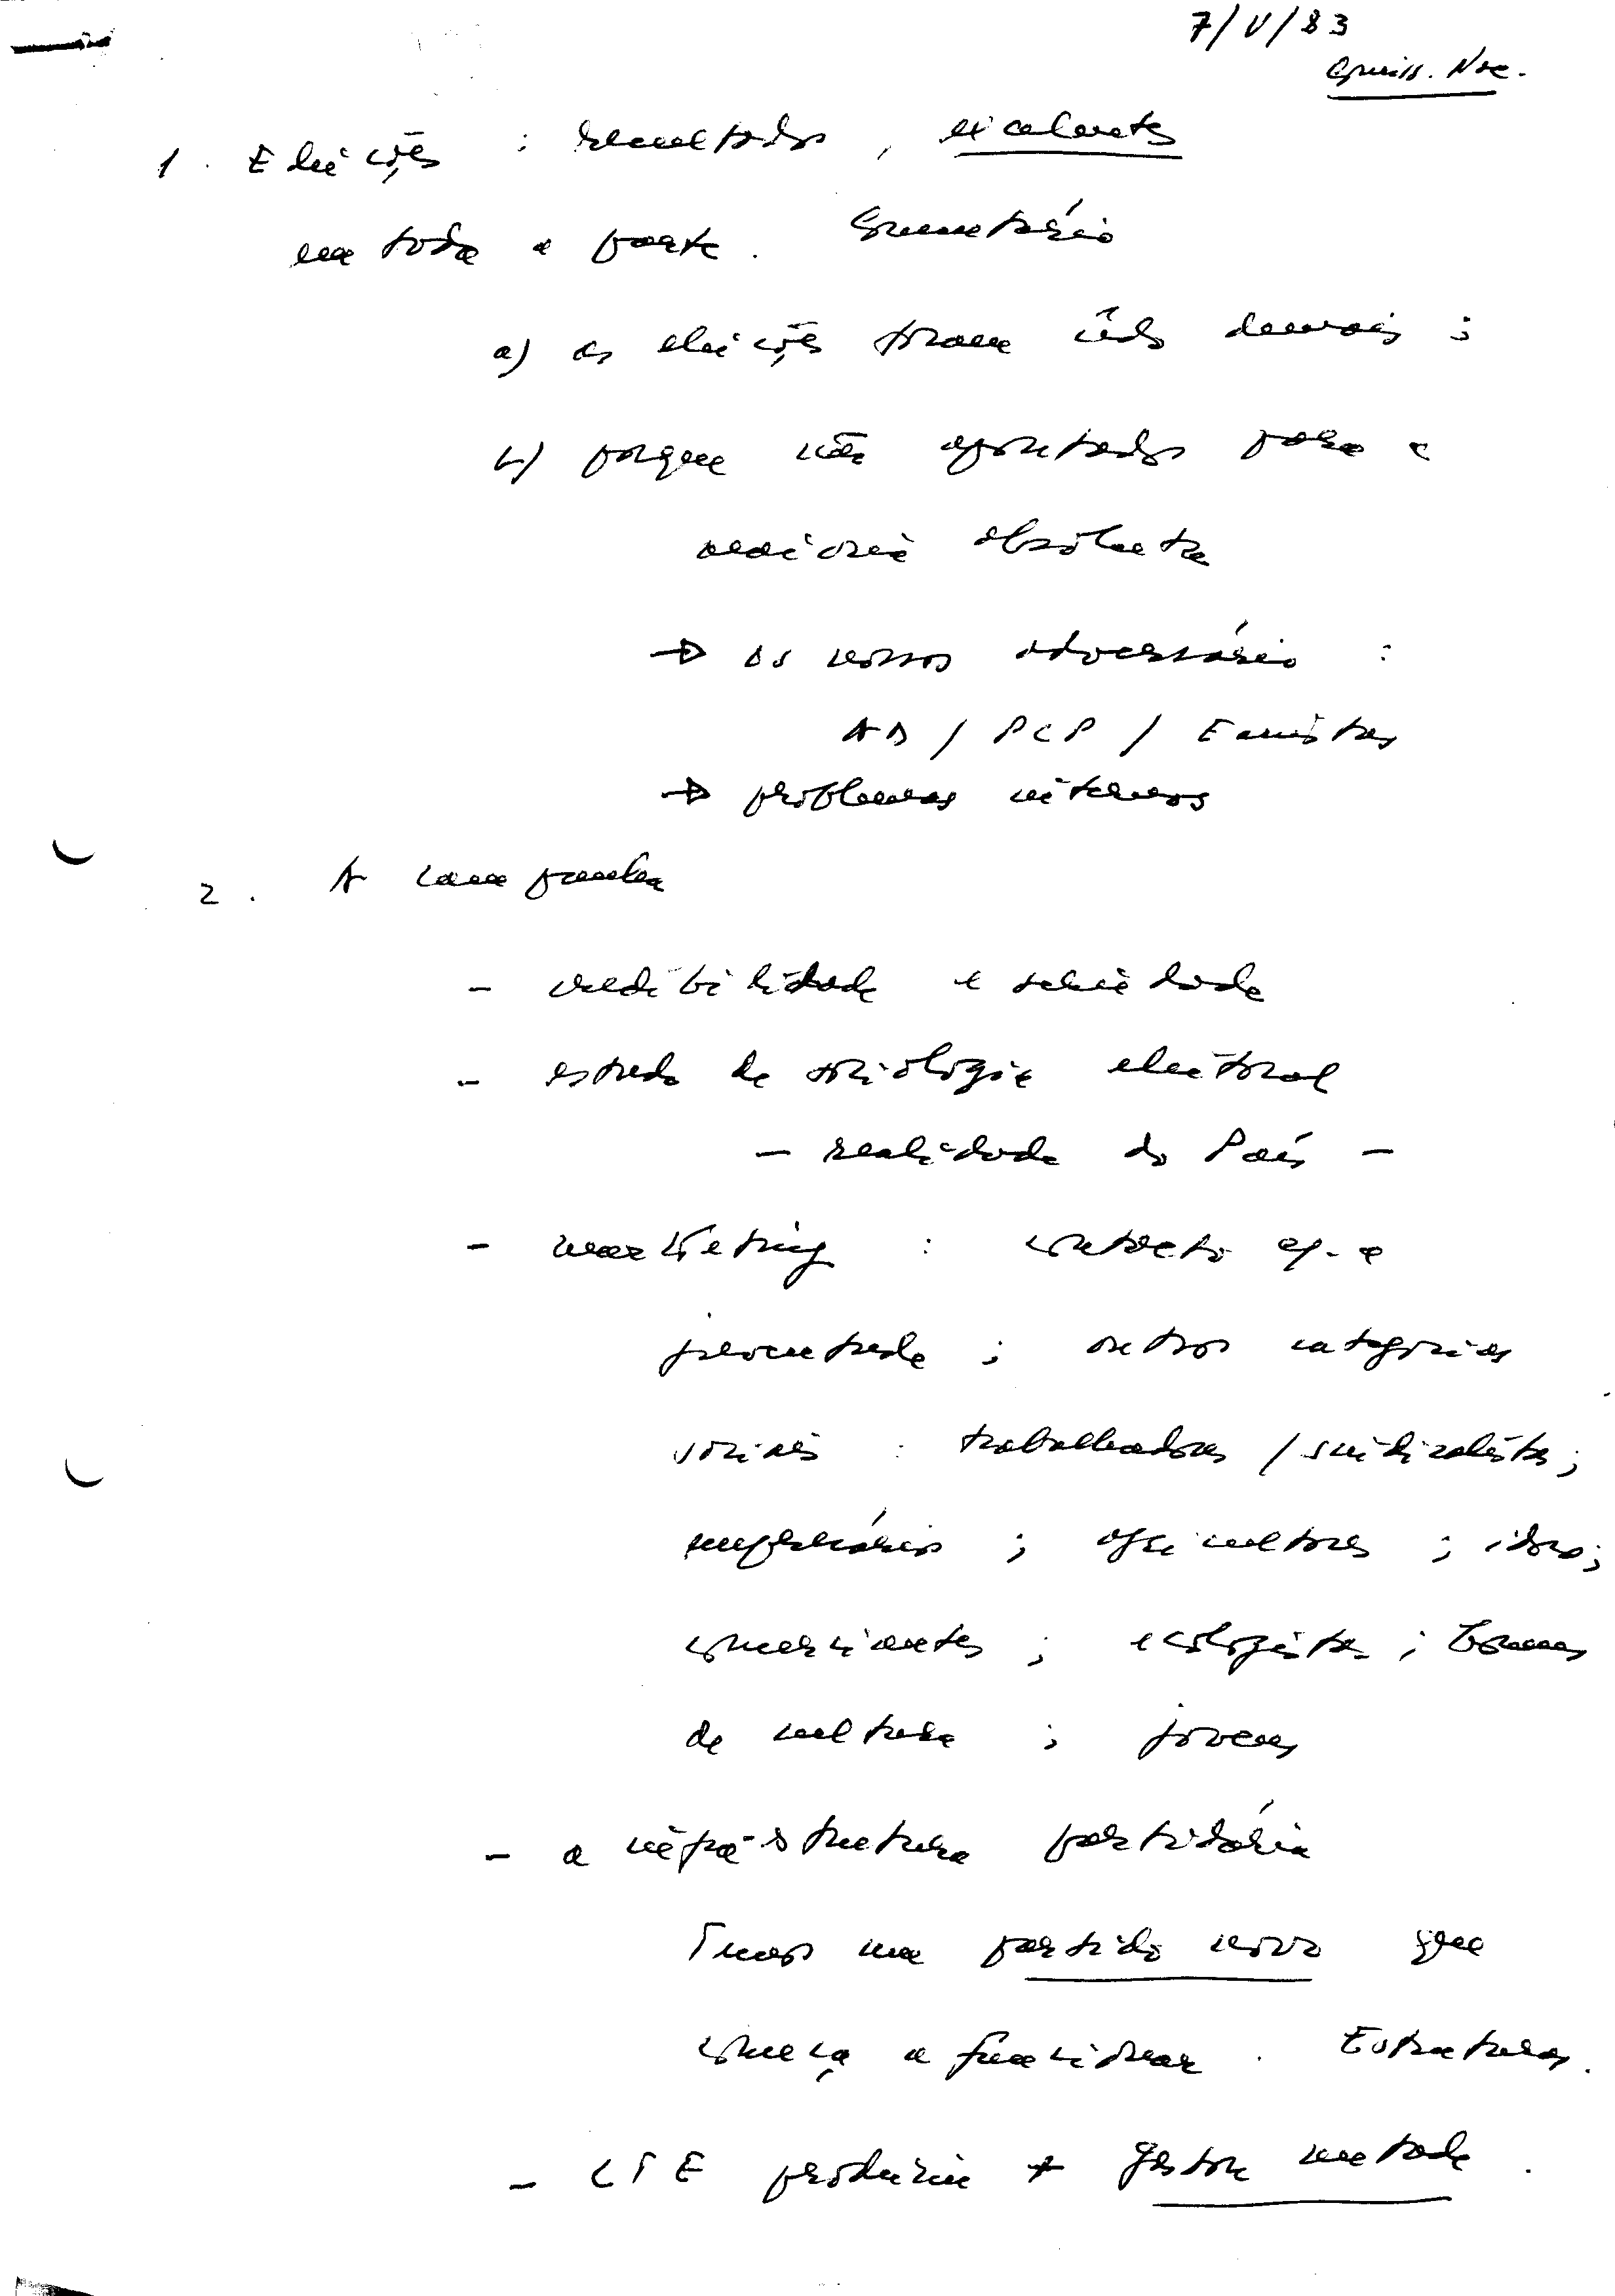 7/V/83
Comiss. Nac.
1. Eleições : resultados, excelentes
em toda a parte. Comentário
a) as eleições foram cedo demais ;
b) porque não apontados para a
maioria absoluta
→ os nossos adversários :
AD / PCP / Eanistas
→ problemas internos
2. A campanha
- credibilidade e seriedade
- estudo de sociologia eleitoral
- realidade do País -
- marketing : contacto c/. a
juventude ; outras categorias
sociais : trabalhadores / sindicalistas ;
empresários ; agricultores ; idosos ;
comerciantes ; ecologistas ; homens
de cultura ; jovens
- a infra-estrutura partidária
Temos um partido novo que
começa a funcionar. Estruturas.
- CTE produziu + gastou metade.